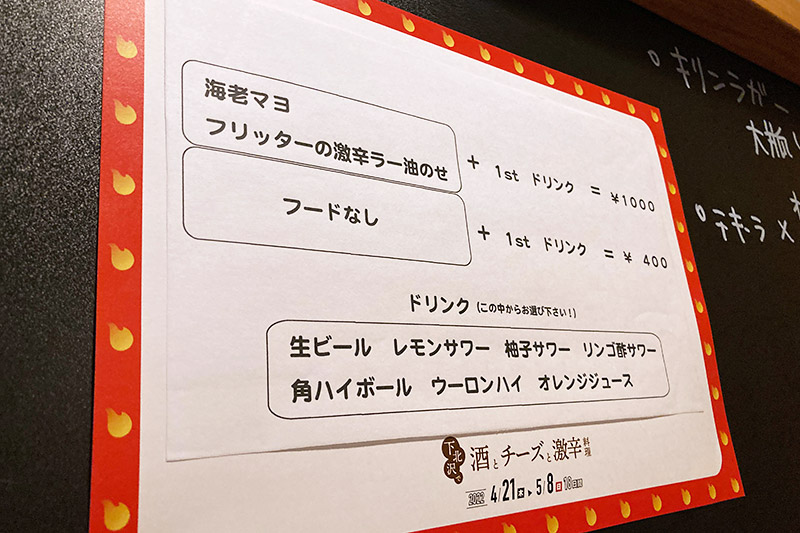 海老マヨ
フリッターの激辛ラー油のせ
+ 1st ドリンク = ¥1000
フードなし
+ 1st ドリンク = ¥ 400
ドリンク (この中からお選び下さい!)
生ビール レモンサワー 柚子サワー リンゴ酢サワー
角ハイボール ウーロンハイ オレンジジュース
下北沢で 酒とチーズと激辛料理
2022 4/21木▶5/8日 18日間
キリンラガー
大瓶
テキーラ ×